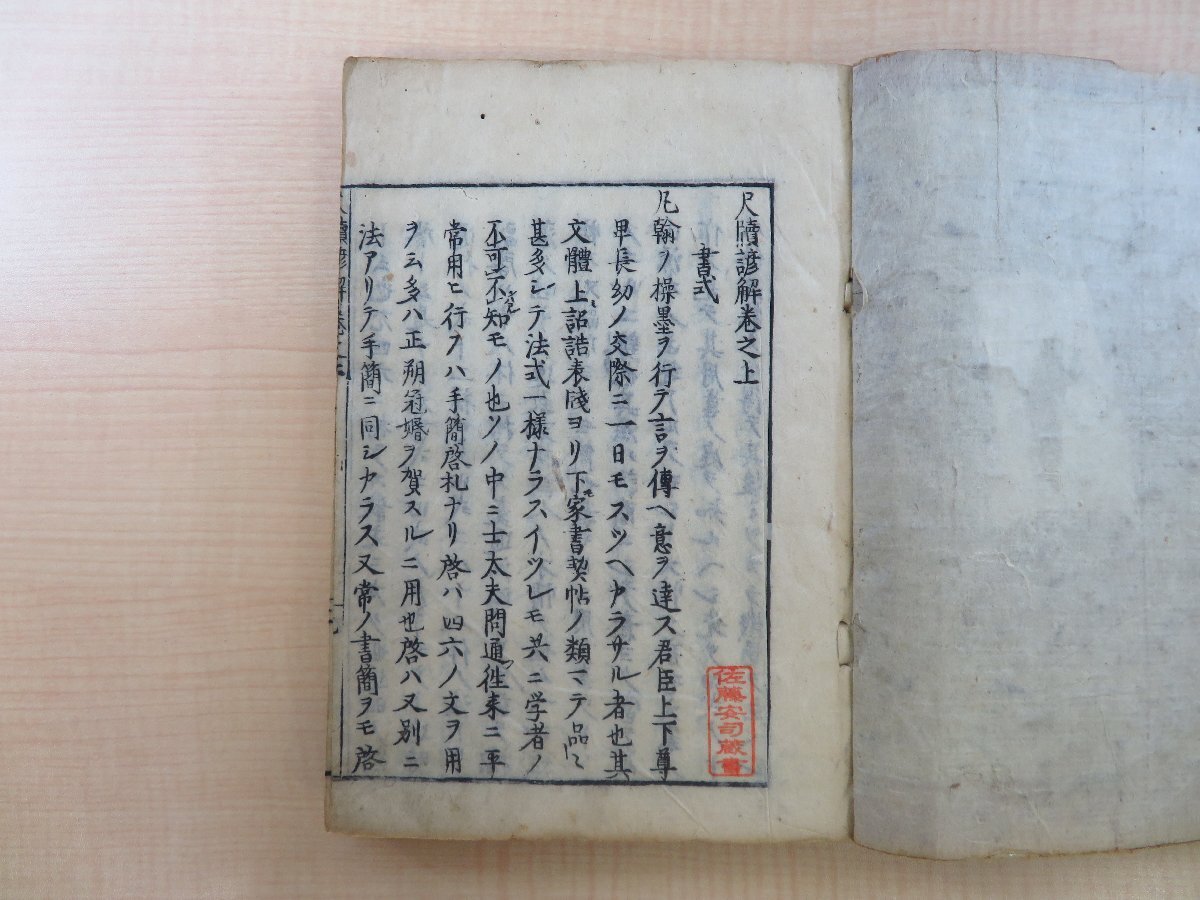 尺牘諺解卷之上
書式
凡翰ヲ操墨ヲ行テ言ヲ傳ヘ意ヲ達ス君臣上下尊
卑長幼ノ交際ニ一日モスツヘカラサル者也其
文體上ミ詔誥表牋ヨリ下モ家書契帖ノ類マテ品〻
甚多シテ法式一樣ナラスイツレモ共ニ学者ノ
不可不知モノ也ソノ中ニ士太夫問通徃来ニ平
常用ヒ行フハ手簡啓札ナリ啓ハ四六ノ文ヲ用
ヲシ多ハ正朔冠婚ヲ賀スルニ用也啓ハ又別ニ
法アリテ手簡ニ同シカラス又常ノ書簡ヲモ啓
佐藤安司蔵書